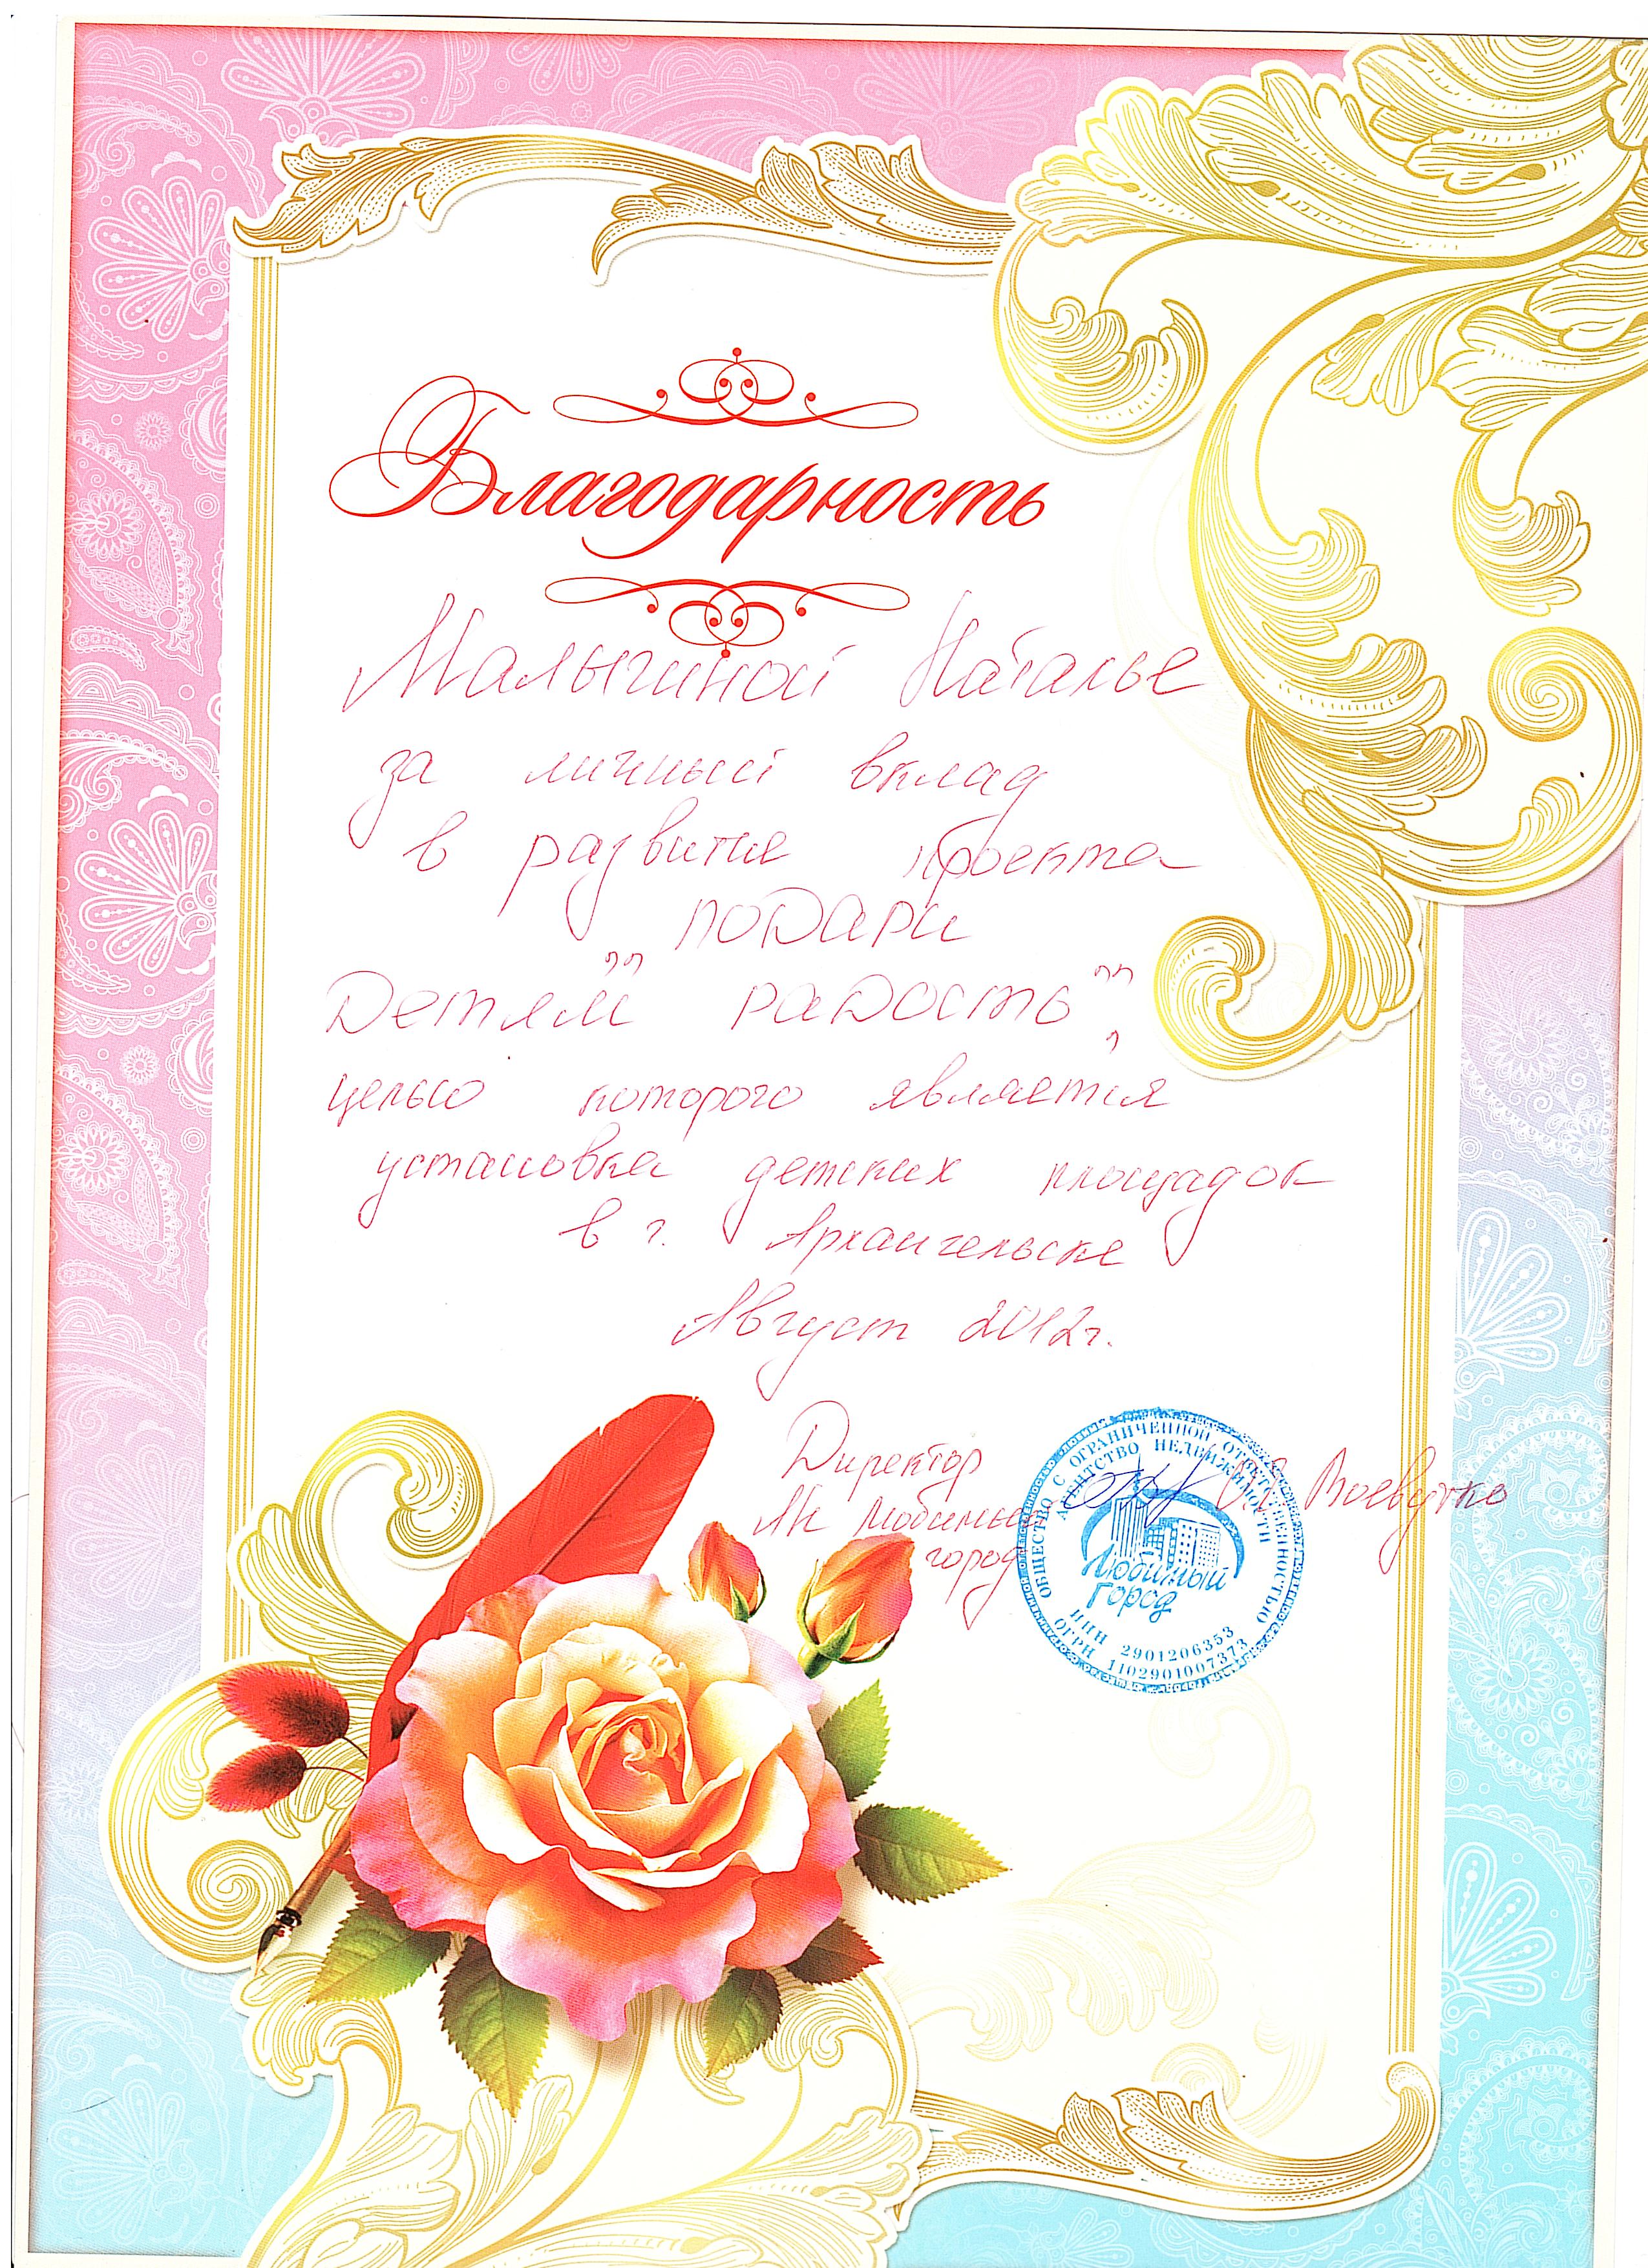 Благодарность
Малыгиной Наталье
за личный вклад
в развитие проекта
подари
Детям" радость",
целью которого является
установка детских площадок
в г. Архангельске
Август 2012г.
Директор
АН Любимый
город
ОБЩЕСТВО С ОГРАНИЧЕННОЙ ОТВЕТСТВЕННОСТЬЮ
АГЕНТСТВО НЕДВИЖИМОСТИ
Любимый
город
ИНН 2901206353
ОГРН 1102901007373